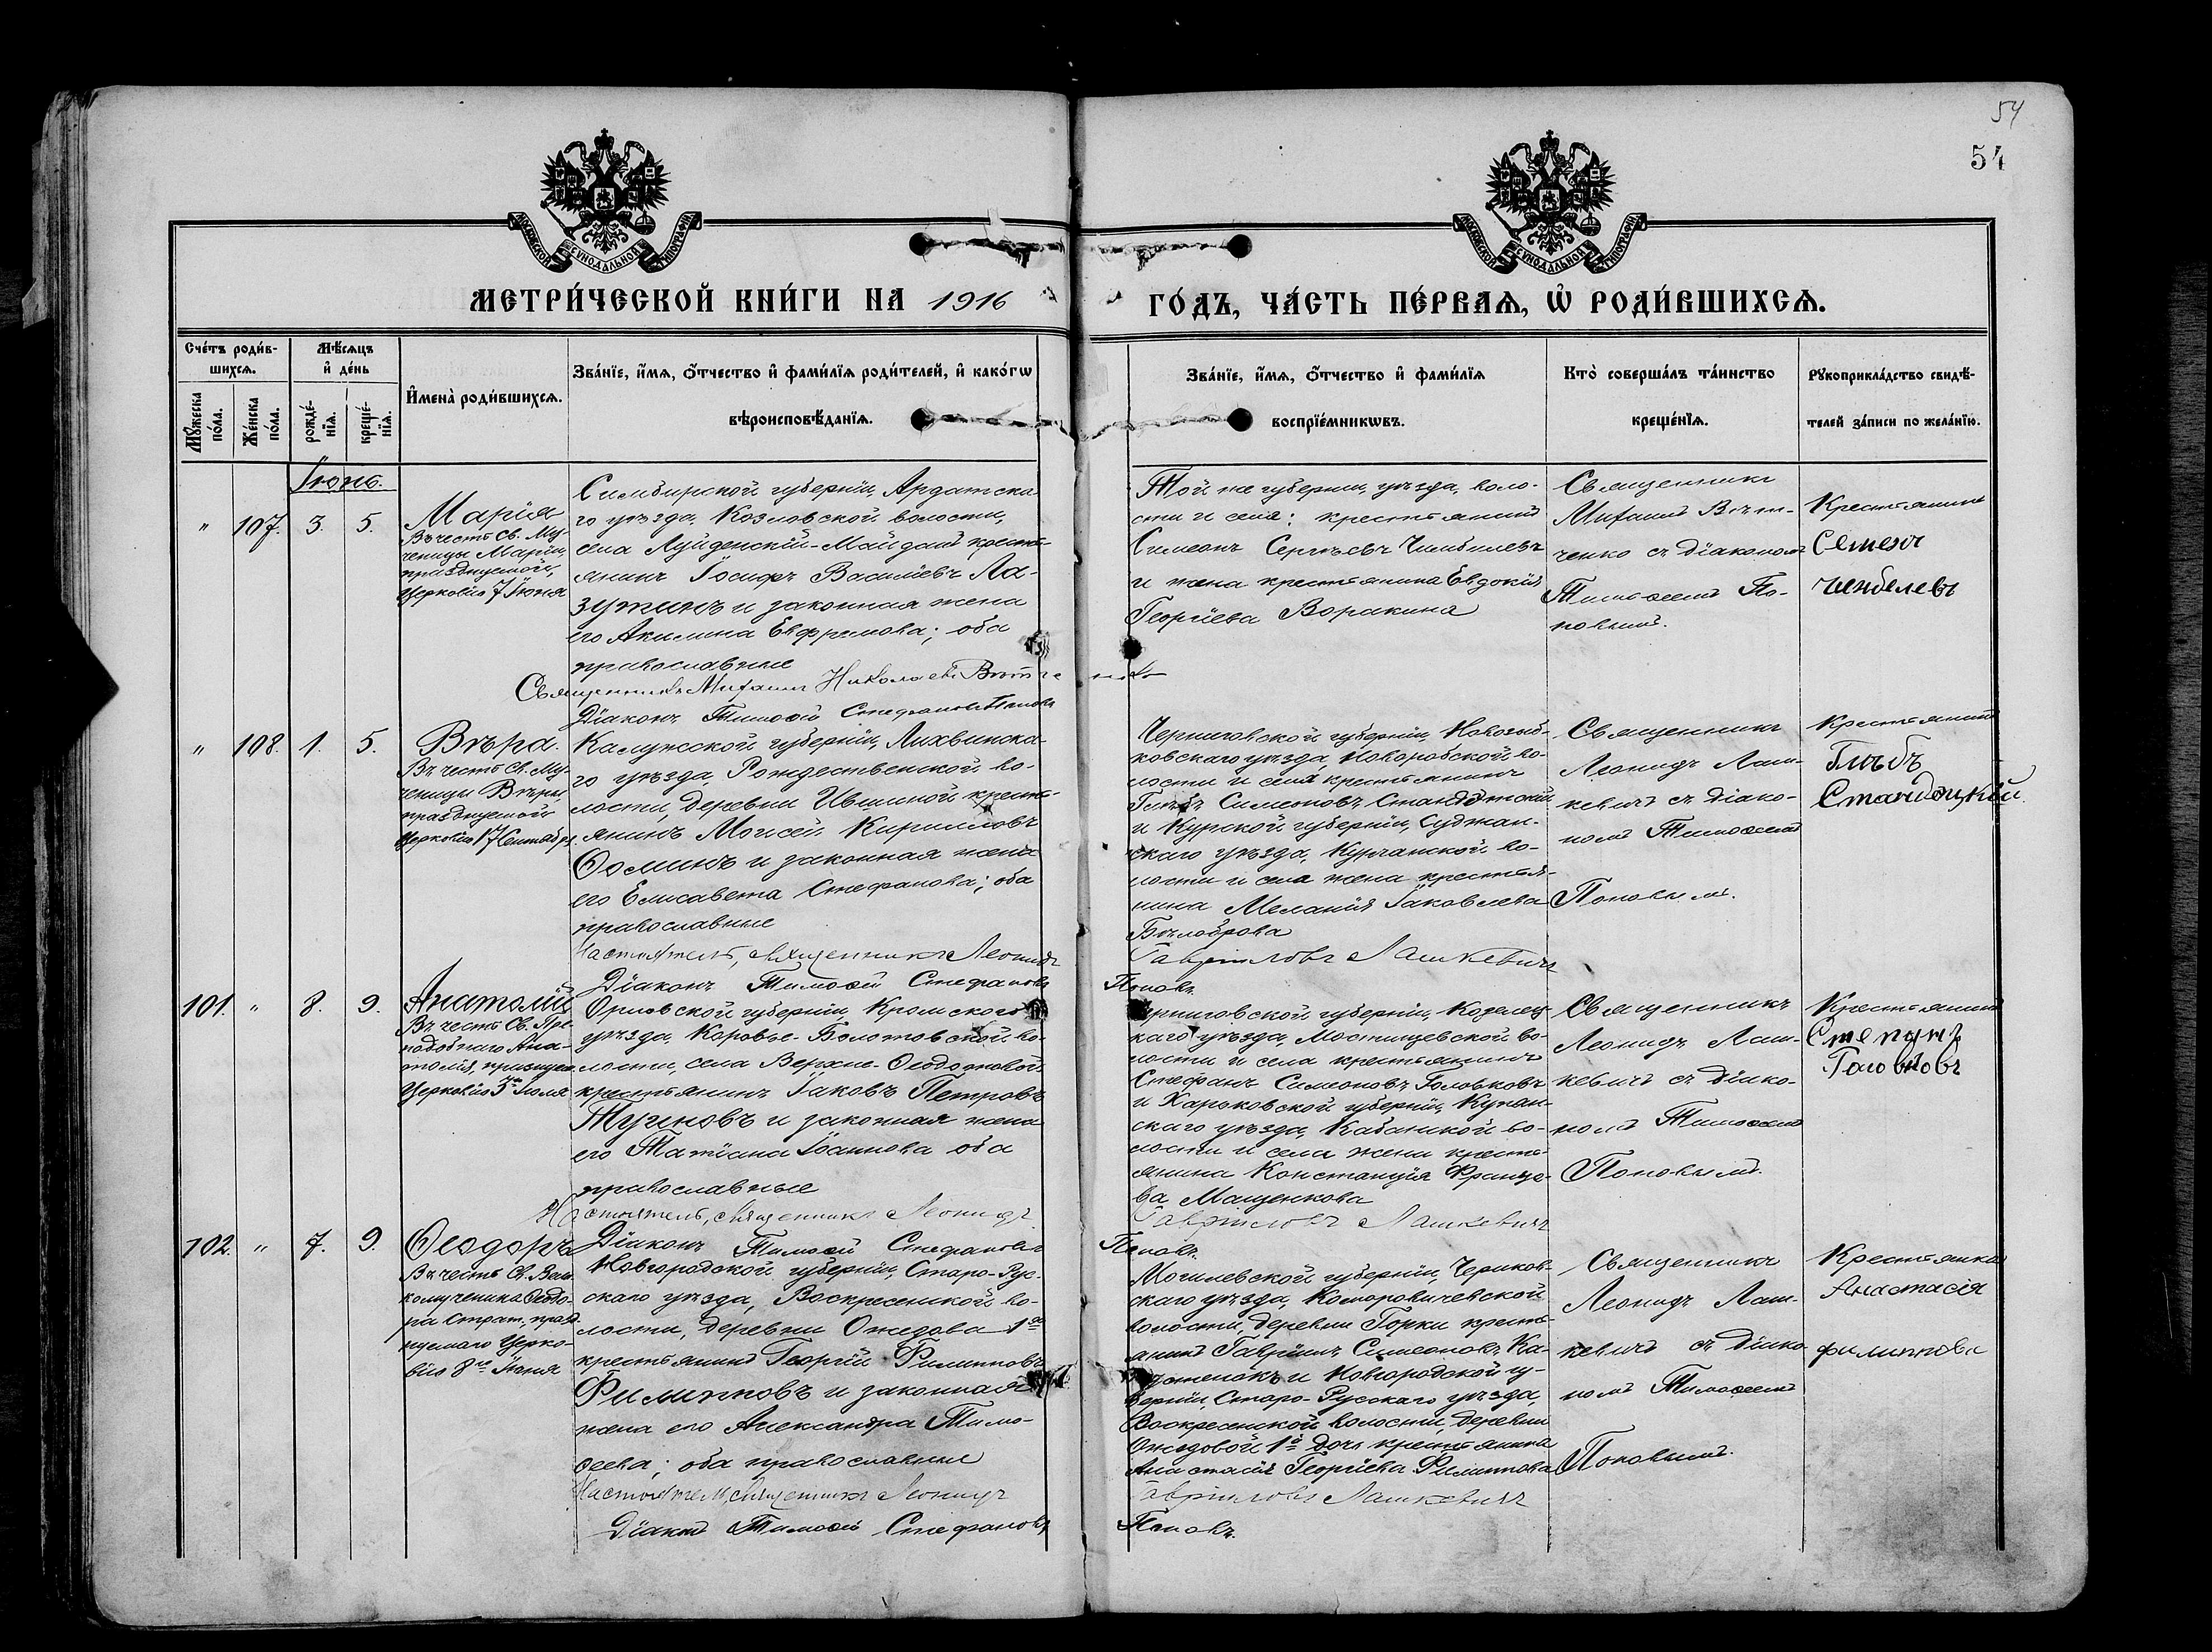 54
54
МОСКОВСКОЙ СѴНОДАЛЬНОЙ ТИПОГРАФІИ
МОСКОВСКОЙ СѴНОДАЛЬНОЙ ТИПОГРАФІИ
МЕТРИ́ЧЕСКОЙ КНИ́ГИ НА 1916
ГО́ДЪ, ЧА́СТЬ ПЕ́РВАѦ, Ѡ РОДИ́ВШИХСѦ.
Сче́тъ роди́в-
шихсѧ.
Мꙋ́жеска по́ла.
Же́нска по́ла.
Мѣ́сѧцъ
и де́нь
рожде́-
нїѧ.
креще́-
нїѧ.
Имена̀ роди́вшихсѧ.
Зва́нїе, и́мѧ, о́тчество и фами́лїѧ роди́телей, и како́гѡ
вѣроисповѣ́данїѧ.
Зва́нїе, и́мѧ, о́тчество и фами́лїѧ
воспрїе́мникѡвъ.
Кто̀ соверша́лъ та́инство
креще́нїѧ.
Рꙋкоприкла́дство свидѣ́-
телей за́писи по жела́нїю.
Іюнь.
" 107. 3. 5.
Марія
Въ честь Св. Му-
ченицы Маріи,
празднуемой
Церковію 7 Іюня
Симбирской губерніи, Ардатска-
го уѣзда, Козловской волости,
села Луйденскій-Майданъ кресть-
янинъ Іосифъ Васильевъ Ла-
зутинъ и законная жена
его Акилина Евфремова; оба
православные
Священникъ Михаилъ Николаевъ
Діаконъ Тимоѳей Стефановъ Поповъ
Той же губерніи, уѣзда, воло-
сти и села: крестьянинъ
Симеонъ Сергѣевъ Чимбилевъ
и жена крестьянина Евдокія
Георгіева Воракина
Священникъ
Михаилъ
ченко съ діакономъ
Тимоѳеемъ По-
повымъ.
Крестьянинъ
Семенъ
Ченбелевъ
" 108. 1. 5.
Вѣра.
Въ честь Св. Му-
ченицы Вѣры,
празднуемой
Церковію 17 Сентября.
Калужской губерніи, Лихвинска-
го уѣзда, Рождественской во-
лости, деревни Ившиной кресть-
янинъ Моисей Кирилловъ
Ѳоминъ и законная жена
его Елисавета Стефанова; оба
православные
Настоятель, священникъ Леонидъ
Діаконъ Тимоѳей Стефановъ
Черниговской губерніи, Новозыб-
ковскаго уѣзда, Новоробской во-
лости и села крестьянинъ
Глѣбъ Симеоновъ
и Курской губерніи, Суджан-
скаго уѣзда, Курчанской во-
лости и села жена крестья-
нина Меланія Іаковлева
Бѣлоброва
Гавріиловъ Лашкевичъ
Поповъ.
Священникъ
Леонидъ Лаш-
кевичъ съ діако-
номъ Тимоѳеемъ
Поповымъ.
Крестьянинъ
Глѣбъ
101. " 8. 9.
Анатолій
Въ честь Св. Пре-
подобнаго Ана-
толія, празднуем.
Церковію 3го Іюля
Орловской губерніи, Кромскаго
уѣзда, Коровье-Болотовской во-
лости, села Верхне-Ѳедотовой
крестьянинъ Іаковъ Петровъ
Тугиновъ и законная жена
его Татіана Іоаннова оба
православные
Настоятель, священникъ Леонидъ
Діаконъ Тимоѳей Стефановъ
Черниговской губерніи, Козелец-
каго уѣзда, Мостищевской во-
лости и села крестьянинъ
Стефанъ Симеоновъ Головковъ
и Харьковской губерніи, Купян-
скаго уѣзда, Кабанской во-
лости и села жена кресть-
янина Констанція Францо-
ва Мащенкова
Гавріиловъ Лашкевичъ
Поповъ.
Священникъ
Леонидъ Лаш-
кевичъ съ діако-
номъ Тимоѳеемъ
Поповымъ.
Крестьянинъ
Степанъ
Головковъ
102. " 7. 9.
Ѳеодоръ
Въ честь Св. Вели-
комученика Ѳеодо-
ра Страт., празд-
нуемаго Церко-
вію 8го Іюня
Новгородской губерніи, Старо-Рус-
скаго уѣзда, Воскресенской во-
лости, деревни Ожедова 1го
крестьянинъ Георгій Филипповъ
Филипповъ и законная
жена его Александра Тимо-
ѳеева; оба православные
Настоятель, священникъ Леонидъ
Діаконъ Тимоѳей Стефановъ
Могилевской губерніи, Чериков-
скаго уѣзда, Комаровичевской
волости, деревни Горки кресть-
янинъ Гавріилъ Симеоновъ
и Новгородской гу-
берніи, Старо-Русскаго уѣзда,
Воскресенской волости, деревни
Ожедовой 1й дочь крестьянина
Анастасія Георгіева Филиппова
Гавріиловъ Лашкевичъ
Поповъ.
Священникъ
Леонидъ Лаш-
кевичъ съ діако-
номъ Тимоѳеемъ
Поповымъ.
Крестьянка
Анастасія
филиппова